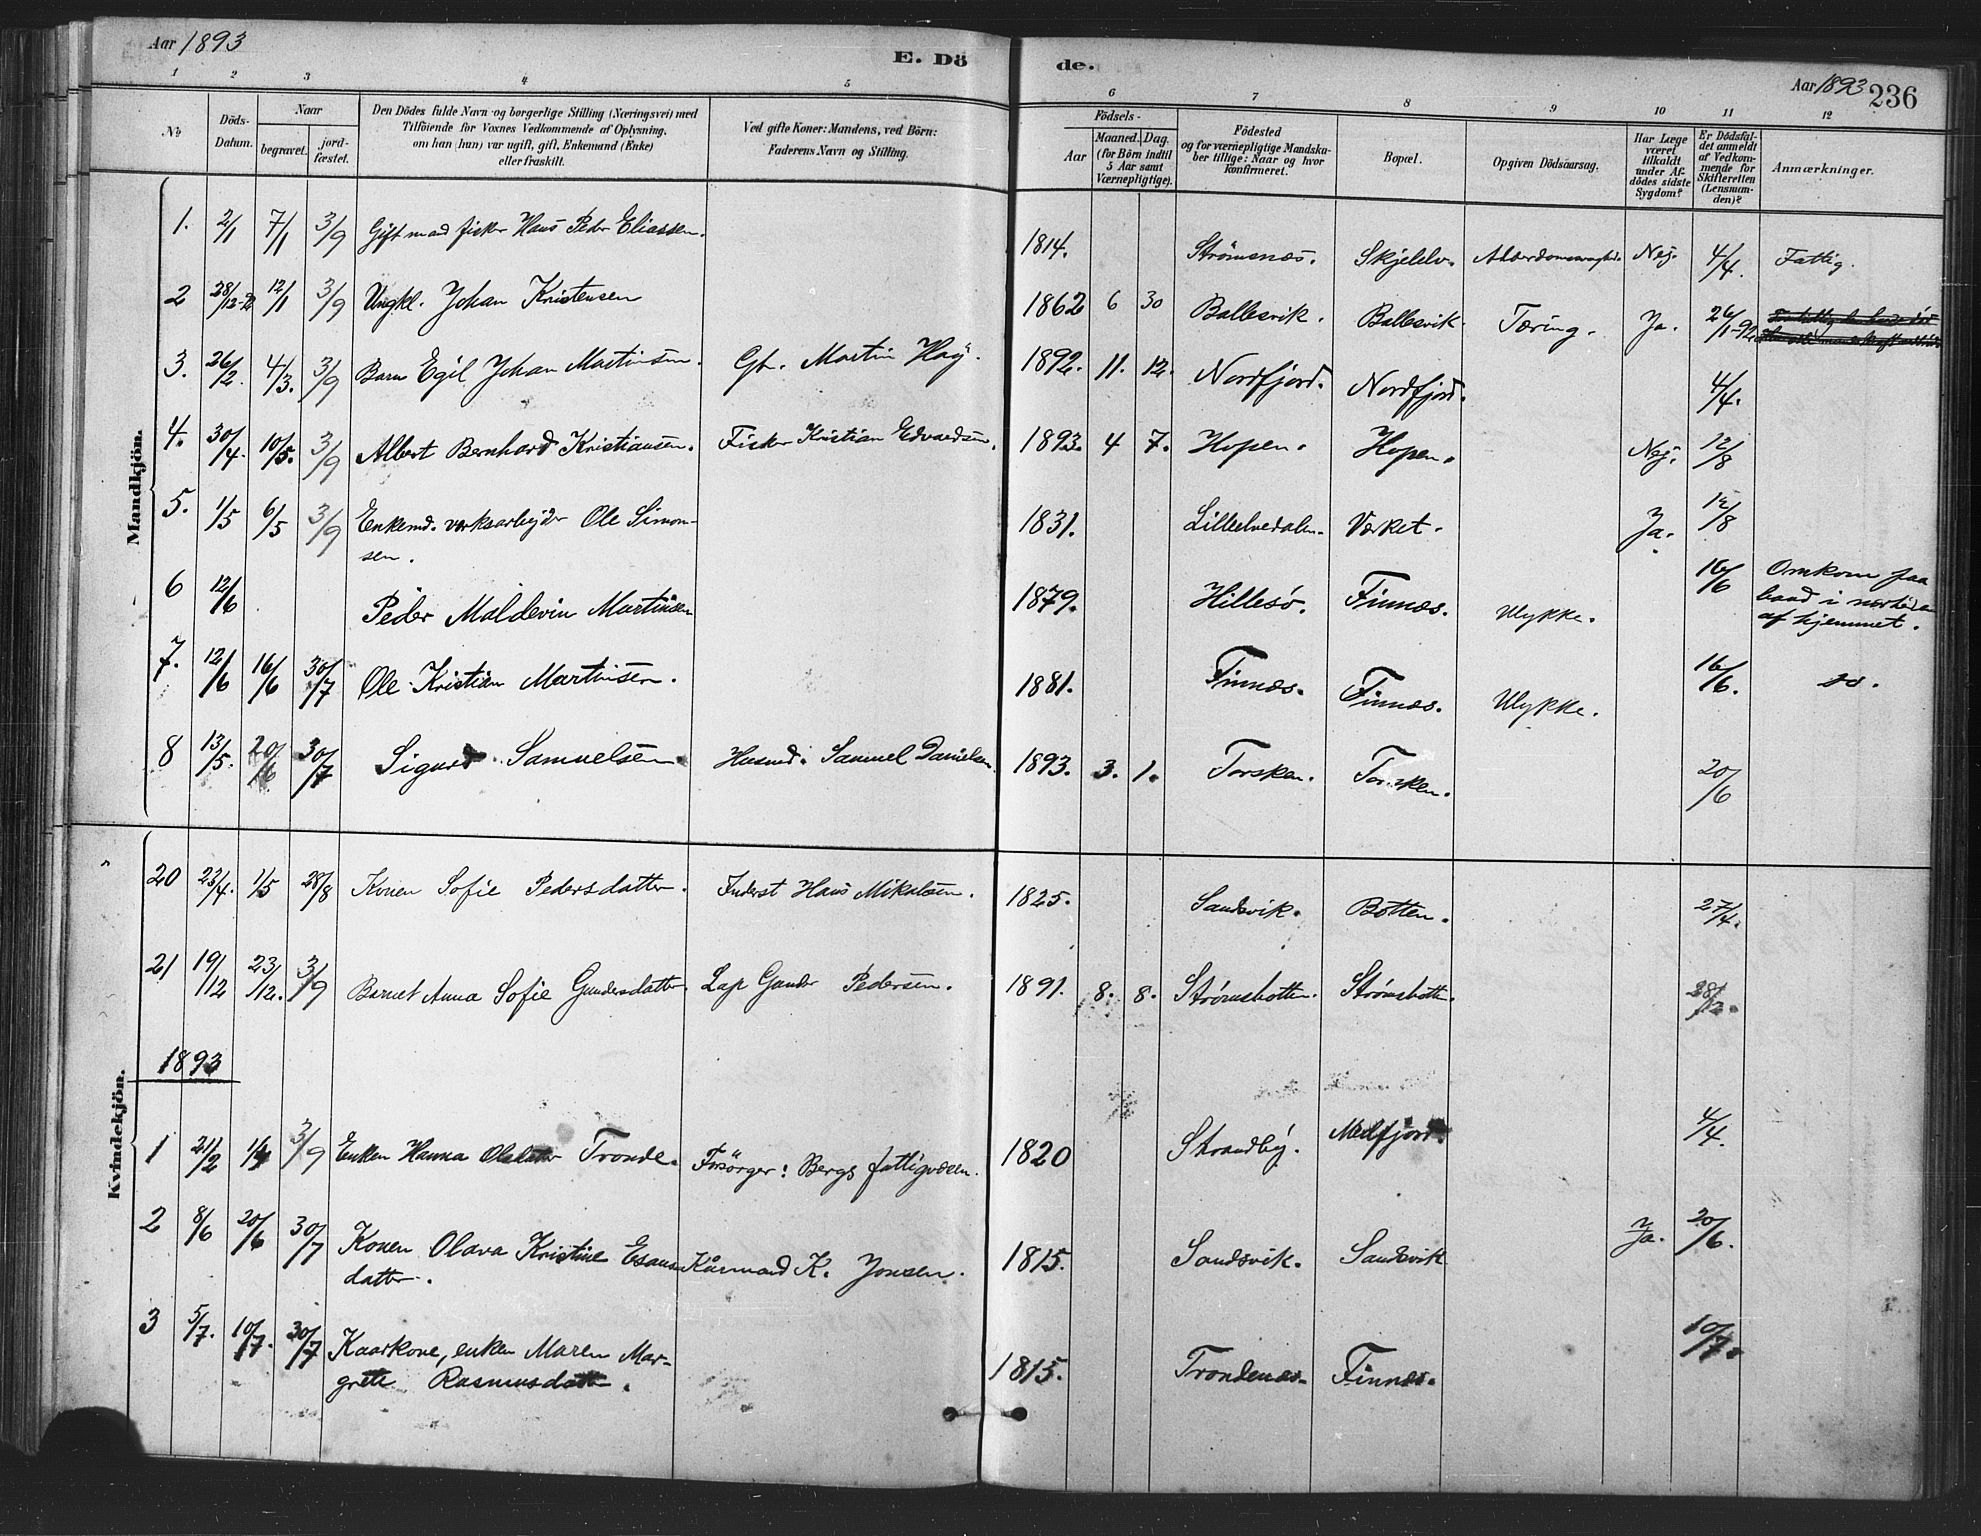 Aar 1893
E. Dö
de.
Aar 1893 236
1 2 3 4 5 6 7 8 9 10 11 12
№
Döds-Datum.
Naar
begravet.
jord-fæstet.
Den Dödes fulde Navn og borgerlige Stilling (Næringsvei) med
Tilföiende for Voxnes Vedkommende af Oplysning,
om han (hun) var ugift, gift, Enkemand (Enke)
eller fraskilt.
Ved gifte Koner: Mandens, ved Börn:
Faderens Navn og Stilling.
Födsels-
Aar
Maaned. Dag.
(for Börn indtil
5 Aar samt
Værnepligtige).
Födested
og for værnepligtige Mandska-
ber tillige: Naar og hvor
konfirmeret.
Bopæl.
Opgiven Dödsaarsag.
Har Læge
været
tilkaldt
under Af-
dödes sidste
Sygdom?
Er Dödsfal-
det anmeldt
af Vedkom-
mende for
Skifteretten
(Lensman-
den)?
Anmærkninger.
Mandkjön.
1. 2/1 7/1 3/9 Gift mand fisker Hans Peder Eliassen. 1814. Strömsnæs. Skjelelv. Nej. 4/4. Fattig.
2 28/12-92 12/1 3/9 Ungkl. Johan Kristensen 1862 6 30 Ballesvik. Ballesvik. Tæring. Ja. 26/1-92
3. 26/2. 4/3. 3/9 Barn Egil Johan Martinsen. Gbr. Martin Hag. 1892. 11. 12. Nordfjord. Nordfjord. 4/4.
4. 30/4 10/5. 3/9 Albert Bernhard Kristiansen. Fisker Kristian Edvardsen. 1893. 4 7. Hopen. Hopen. Nej. 12/8
5. 1/5 6/5 3/9 Enkemd. værksarbejder Ole Simon-
sen. 1831. Lilleelvedalen. Værket. Ja. 12/8
6 12/6 Peder Maldevin Martinsen 1879. Hillesö. Finnæs. Ulykke. 16/6 Omkom paa
baad i nærheden
af hjemmet.
7. 12/6 16/6 30/7 Ole Kristian Martinsen. 1881. Finnæs. Finnæs. Ulykke. 16/6. do.
8 13/5. 20/6 30/7 Sigurd Samuelsen. Husmd. Samuel Danielsen. 1893. 3. 1. Torsken. Torsken. 20/6
Kvindekjön.
20 23/4. 1/5 28/8 Konen Sofie Pedersdatter. Inderst Hans Mikalsen. 1825. Sandsvik. Botten. 27/4.
21 19/12 23/12. 3/9 Barnet Anna Sofie Gundersdatter Lap Gunder Pedersen. 1891. 8. 8. Strömsbotten. Strömsbotten. 28/12.
1893
1 21/2 1/4 3/9 Enken Hanna Olsdatter Tronde. Forsörger: Bergs fattigvæsen. 1820 Strandby. Medfjord. 4/4.
2 8/6 20/6 30/7 Konen Olava Kristine Esaus-
datter. Kårmand K. Jonsen. 1815. Sandsvik. Sandsvik Ja. 20/6.
3 5/7. 10/7. 30/7 Kaarkone, enken Maren Mar-
grete Rasmusdatter. 1815. Trondenæs. Finnæs. 10/7.